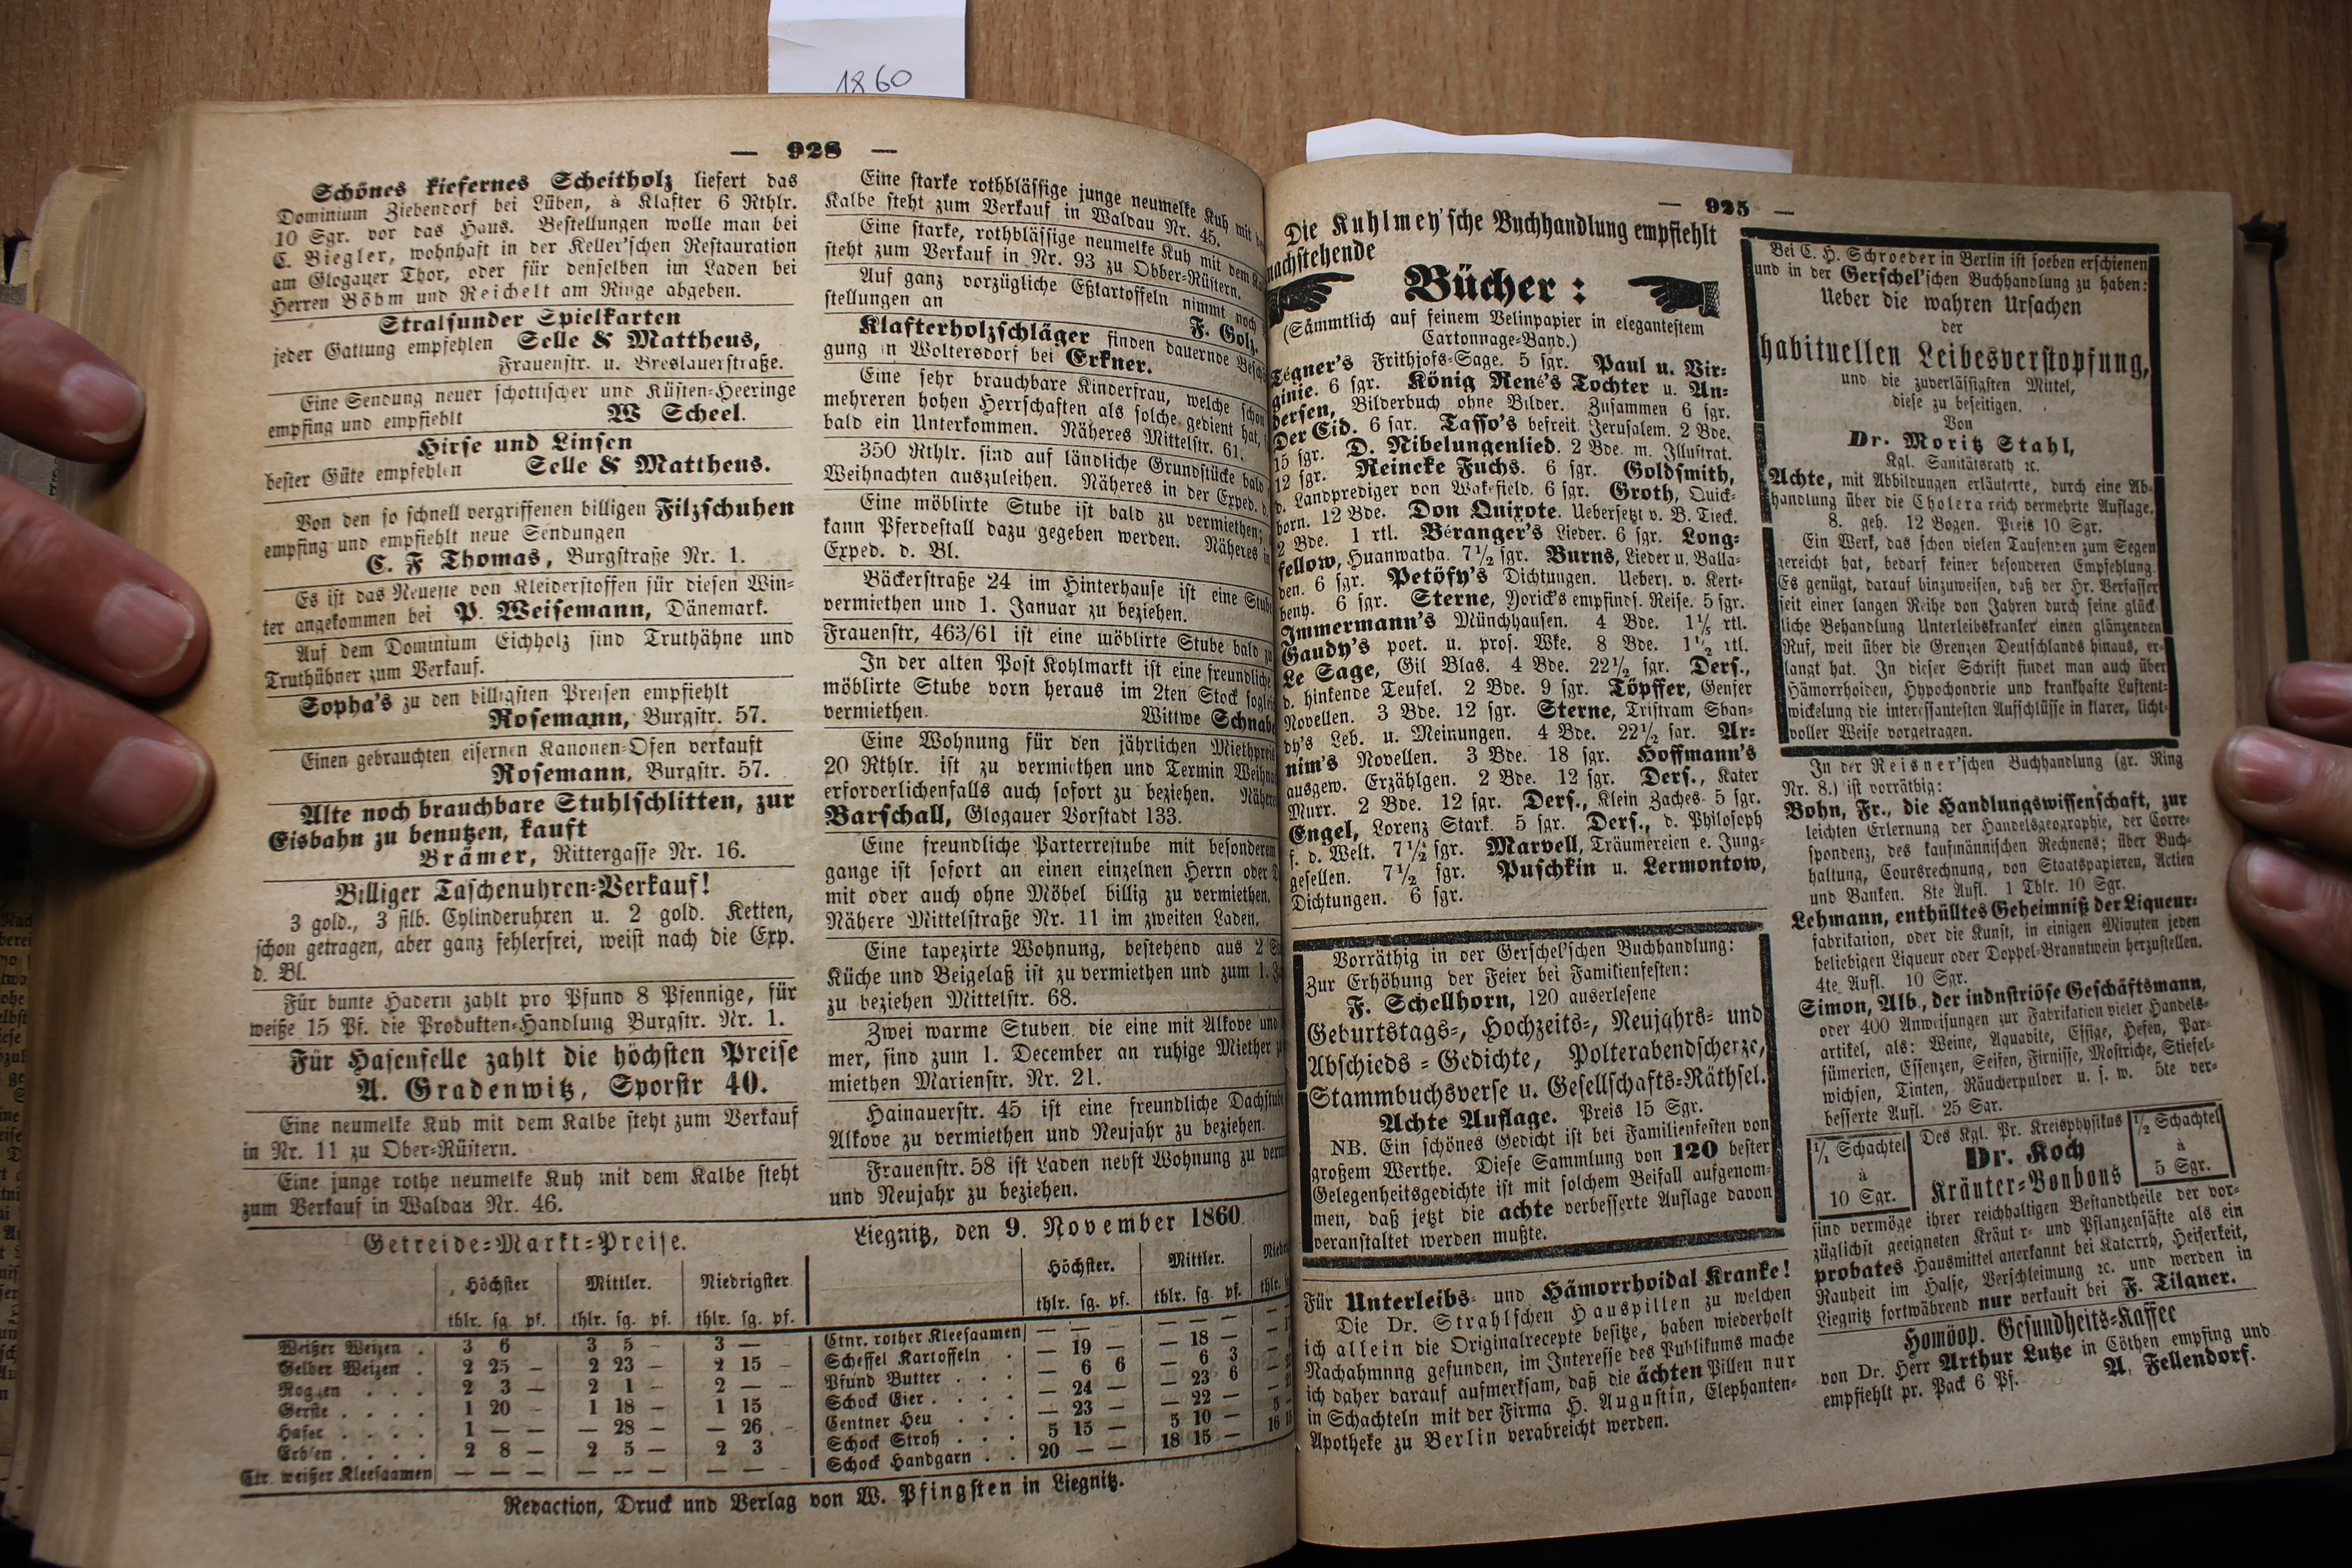 1860
— 928 —
Schönes kiefernes Scheitholz liefert das
Dominium Ziebendorf bei Lüben, à Klafter 6 Rthlr.
10 Sgr. vor das Haus. Bestellungen wolle man bei
C. Biegler, wohnhaft in der Keller'schen Restauration
am Glogauer Thor, oder für denselben im Laden bei
Herren Böhm und Reichelt am Ringe abgeben.
Stralsunder Spielkarten
jeder Gattung empfehlen Selle & Mattheus,
Frauenstr. u. Breslauerstraße.
Eine Sendung neuer schottischer und Küsten-Heeringe
empfing und empfiehlt W Scheel.
Hirse und Linsen
bester Güte empfehlen Selle & Mattheus.
Von den so schnell vergriffenen billigen Filzschuhen
empfing und empfiehlt neue Sendungen
C. F Thomas, Burgstraße Nr. 1.
Es ist das Neueste von Kleiderstoffen für diesen Win-
ter angekommen bei P. Weisemann, Dänemark.
Auf dem Dominium Eichholz sind Truthähne und
Truthühner zum Verkauf.
Sopha's zu den billigsten Preisen empfiehlt
Rosemann, Burgstr. 57.
Einen gebrauchten eisernen Kanonen-Ofen verkauft
Rosemann, Burgstr. 57.
Alte noch brauchbare Stuhlschlitten, zur
Eisbahn zu benutzen, kauft
Brämer, Rittergasse Nr. 16.
Billiger Taschenuhren-Verkauf!
3 gold., 3 silb. Cylinderuhren u. 2 gold. Ketten,
schon getragen, aber ganz fehlerfrei, weist nach die Exp.
d. Bl.
Für bunte Hadern zahlt pro Pfund 8 Pfennige, für
weiße 15 Pf. die Produkten-Handlung Burgstr. Nr. 1.
Für Hasenfelle zahlt die höchsten Preise
A. Gradenwitz, Sporstr 40.
Eine neumelke Kuh mit dem Kalbe steht zum Verkauf
in Nr. 11 zu Ober-Rüstern.
Eine junge rothe neumelke Kuh mit dem Kalbe steht
zum Verkauf in Waldau Nr. 46.
Eine starke rothblässige junge neumelke Kuh mit
Kalbe steht zum Verkauf in Waldau Nr. 45.
Eine starke, rothblässige neumelke Kuh mit dem
steht zum Verkauf in Nr. 93 zu Obber-Rüstern.
Auf ganz vorzügliche Eßkartoffeln nimmt noch
stellungen an F. Golz.
Klafterholzschläger finden dauernde
gung in Woltersdorf bei Erkner.
Eine sehr brauchbare Kinderfrau, welche schon
mehreren hohen Herrschaften als solche gedient hat,
bald ein Unterkommen. Näheres Mittelstr. 61.
350 Rthlr. sind auf ländliche Grundstücke bald
Weihnachten auszuleihen. Näheres in der Exped. d.
Eine möblirte Stube ist bald zu vermiethen;
kann Pferdestall dazu gegeben werden. Näheres in
Exped. d. Bl.
Bäckerstraße 24 im Hinterhause ist eine Stube
vermiethen und 1. Januar zu beziehen.
Frauenstr, 463/61 ist eine möblirte Stube bald
In der alten Post Kohlmarkt ist eine freundliche
möblirte Stube vorn heraus im 2ten Stock
vermiethen. Wittwe Schnabe
Eine Wohnung für den jährlichen Miethpreis
20 Rthlr. ist zu vermiethen und Termin
erforderlichenfalls auch sofort zu beziehen.
Barschall, Glogauer Vorstadt 133.
Eine freundliche Parterrestube mit besonderem
gange ist sofort an einen einzelnen Herrn oder
mit oder auch ohne Möbel billig zu vermiethen.
Nähere Mittelstraße Nr. 11 im zweiten Laden.
Eine tapezirte Wohnung, bestehend aus 2
Küche und Beigelaß ist zu vermiethen und zum 1.
zu beziehen Mittelstr. 68.
Zwei warme Stuben, die eine mit Alkove und
mer, sind zum 1. December an ruhige Miether
miethen Marienstr. Nr. 21.
Hainauerstr. 45 ist eine freundliche Dachstube
Alkove zu vermiethen und Neujahr zu beziehen.
Frauenstr. 58 ist Laden nebst Wohnung zu
und Neujahr zu beziehen.
Getreide-Markt-Preise.
Liegnitz, den 9. November 1860.
Höchster Mittler. Niedrigster.
thlr. sg. pf. thlr. sg. pf. thlr. sg. pf.
Weißer Weizen . 3 6 3 5 – 3 — –
Gelber Weizen . 2 25 – 2 23 – 2 15 –
Roggen . . . 2 3 — 2 1 – 2 — –
Gerste . . . . 1 20 – 1 18 – 1 15
Hafer . . . . 1 — – — 28 — — 26 –
Erbsen . . . . 2 8 — 2 5 — 2 3
Ctr. weißer Kleesaamen — — — — — — — — —
Höchster. Mittler.
thlr. sg. pf. thlr. sg. pf. thlr.
Ctnr. rother Kleesaamen — — — — — —
Scheffel Kartoffeln . — 19 — — 18 —
Pfund Butter . . . — 6 6 — 6 3
Schock Eier . . . . — 24 — — 23 6
Centner Heu . . . — 23 — — 22 —
Schock Stroh . . . 5 15 — 5 10 —
Schock Handgarn . . 20 — — 18 15 —
Redaction, Druck und Verlag von W. Pfingsten in Liegnitz.
— 925 —
Die Kuhlmey'sche Buchhandlung empfiehlt
nachstehende
Bücher:
(Sämmtlich auf feinem Velinpapier in elegantestem
Cartonnage-Band.)
Tegner's Frithjofs-Sage. 5 sgr. Paul u. Vir-
ginie. 6 sgr. König René's Tochter u. An-
dersen, Bilderbuch ohne Bilder. Zusammen 6 sgr.
Der Cid. 6 sgr. Tasso's befreit. Jerusalem. 2 Bde.
15 sgr. D. Nibelungenlied. 2 Bde. m. Illustrat.
12 sgr. Reineke Fuchs. 6 sgr. Goldsmith,
d. Landprediger von Wakefield. 6 sgr. Groth, Quick-
born. 12 Bde. Don Quixote. Uebersetzt v. B. Tieck.
2 Bde. 1 rtl. Béranger's Lieder. 6 sgr. Long-
fellow, Huanwatha. 7½ sgr. Burns, Lieder u. Balla-
den. 6 sgr. Petöfy's Dichtungen. Uebers. v. Kert-
beny. 6 sgr. Sterne, Yorick's empfinds. Reise. 5 sgr.
Immermann's Münchhausen. 4 Bde. 1⅕ rtl.
Gaudy's poet. u. pros. Wke. 8 Bde. 1½ rtl.
Le Sage, Gil Blas. 4 Bde. 22½ sgr. Ders.,
d. hinkende Teufel. 2 Bde. 9 sgr. Töpffer, Genfer
Novellen. 3 Bde. 12 sgr. Sterne, Tristram Shan-
dy's Leb. u. Meinungen. 4 Bde. 22½ sgr. Ar-
nim's Novellen. 3 Bde. 18 sgr. Hoffmann's
ausgew. Erzählgen. 2 Bde. 12 sgr. Ders., Kater
Murr. 2 Bde. 12 sgr. Ders., Klein Zaches. 5 sgr.
Engel, Lorenz Stark. 5 sgr. Ders., d. Philosoph
f. d. Welt. 7½ sgr. Marvell, Träumereien e. Jung-
gesellen. 7½ sgr. Puschkin u. Lermontow,
Dichtungen. 6 sgr.
Vorräthig in der Gerschel'schen Buchhandlung:
Zur Erhöhung der Feier bei Familienfesten:
F. Schellhorn, 120 auserlesene
Geburtstags-, Hochzeits-, Neujahrs- und
Abschieds-Gedichte, Polterabendscherze,
Stammbuchsverse u. Gesellschafts-Räthsel.
Achte Auflage. Preis 15 Sgr.
NB. Ein schönes Gedicht ist bei Familienfesten von
großem Werthe. Diese Sammlung von 120 bester
Gelegenheitsgedichte ist mit solchem Beifall aufgenom-
men, daß jetzt die achte verbesserte Auflage davon
veranstaltet werden mußte.
Für Unterleibs- und Hämorrhoidal Kranke!
Die Dr. Strahlschen Hauspillen zu welchen
ich allein die Originalrecepte besitze, haben wiederholt
Nachahmnng gefunden, im Interesse des Publikums mache
ich daher darauf aufmerksam, daß die ächten Pillen nur
in Schachteln mit der Firma H. Augustin, Elephanten-
Apotheke zu Berlin verabreicht werden.
Bei C. H. Schroeder in Berlin ist soeben erschienen
und in der Gerschel'schen Buchhandlung zu haben:
Ueber die wahren Ursachen
der
habituellen Leibesverstopfung,
und die zuverlässigsten Mittel,
diese zu beseitigen.
Von
Dr. Moritz Stahl,
Kgl. Sanitätsrath ꝛc.
Achte, mit Abbildungen erläuterte, durch eine Ab-
handlung über die Cholera reich vermehrte Auflage.
8. geh. 12 Bogen. Preis 10 Sgr.
Ein Werk, das schon vielen Tausenden zum Segen
gereicht hat, bedarf keiner besonderen Empfehlung.
Es genügt, darauf hinzuweisen, daß der Hr. Verfasser
seit einer langen Reihe von Jahren durch seine glück-
liche Behandlung Unterleibskranker einen glänzenden
Ruf, weit über die Grenzen Deutschlands hinaus, er-
langt hat. In dieser Schrift findet man auch über
Hämorrhoiden, Hypochondrie und krankhafte Luftent-
wickelung die interessantesten Aufschlüsse in klarer, licht-
voller Weise vorgetragen.
In der Reisner'schen Buchhandlung (gr. Ring
Nr. 8.) ist vorräthig:
Bohn, Fr., die Handlungswissenschaft, zur
leichten Erlernung der Handelsgeographie, der Corre-
spondenz, des kaufmännischen Rechnens; über Buch-
haltung, Coursrechnung, von Staatspapieren, Actien
und Banken. 8te Aufl. 1 Thlr. 10 Sgr.
Lehmann, enthülltes Geheimniß der Liqueur-
fabrikation, oder die Kunst, in einigen Minuten jeden
beliebigen Liqueur oder Doppel-Branntwein herzustellen.
4te Aufl. 10 Sgr.
Simon, Alb., der indnstriöse Geschäftsmann,
oder 400 Anweisungen zur Fabrikation vieler Handels-
artikel, als: Weine, Aquavite, Essige, Hefen, Par-
fümerien, Essenzen, Seifen, Firnisse, Mostriche, Stiefel-
wichsen, Tinten, Räucherpulver u. s. w. 5te ver-
besserte Aufl. 25 Sgr.
1/1 Schachtel
à
10 Sgr.
Des Kgl. Pr. Kreisphysikus
Dr. Koch
Kräuter-Bonbons
1/2 Schachtel
à
5 Sgr.
sind vermöge ihrer reichhaltigen Bestandtheile der vor-
züglichst geeigneten Kräuter- und Pflanzensäfte als ein
probates Hausmittel anerkannt bei Katarrh, Heiserkeit,
Rauheit im Halse, Verschleimung ꝛc. und werden in
Liegnitz fortwährend nur verkauft bei F. Tilgner.
Homöop. Gesundheits-Kaffee
von Dr. Herr Arthur Lutze in Cöthen empfing und
empfiehlt pr. Pack 6 Pf. A. Fellendorf.